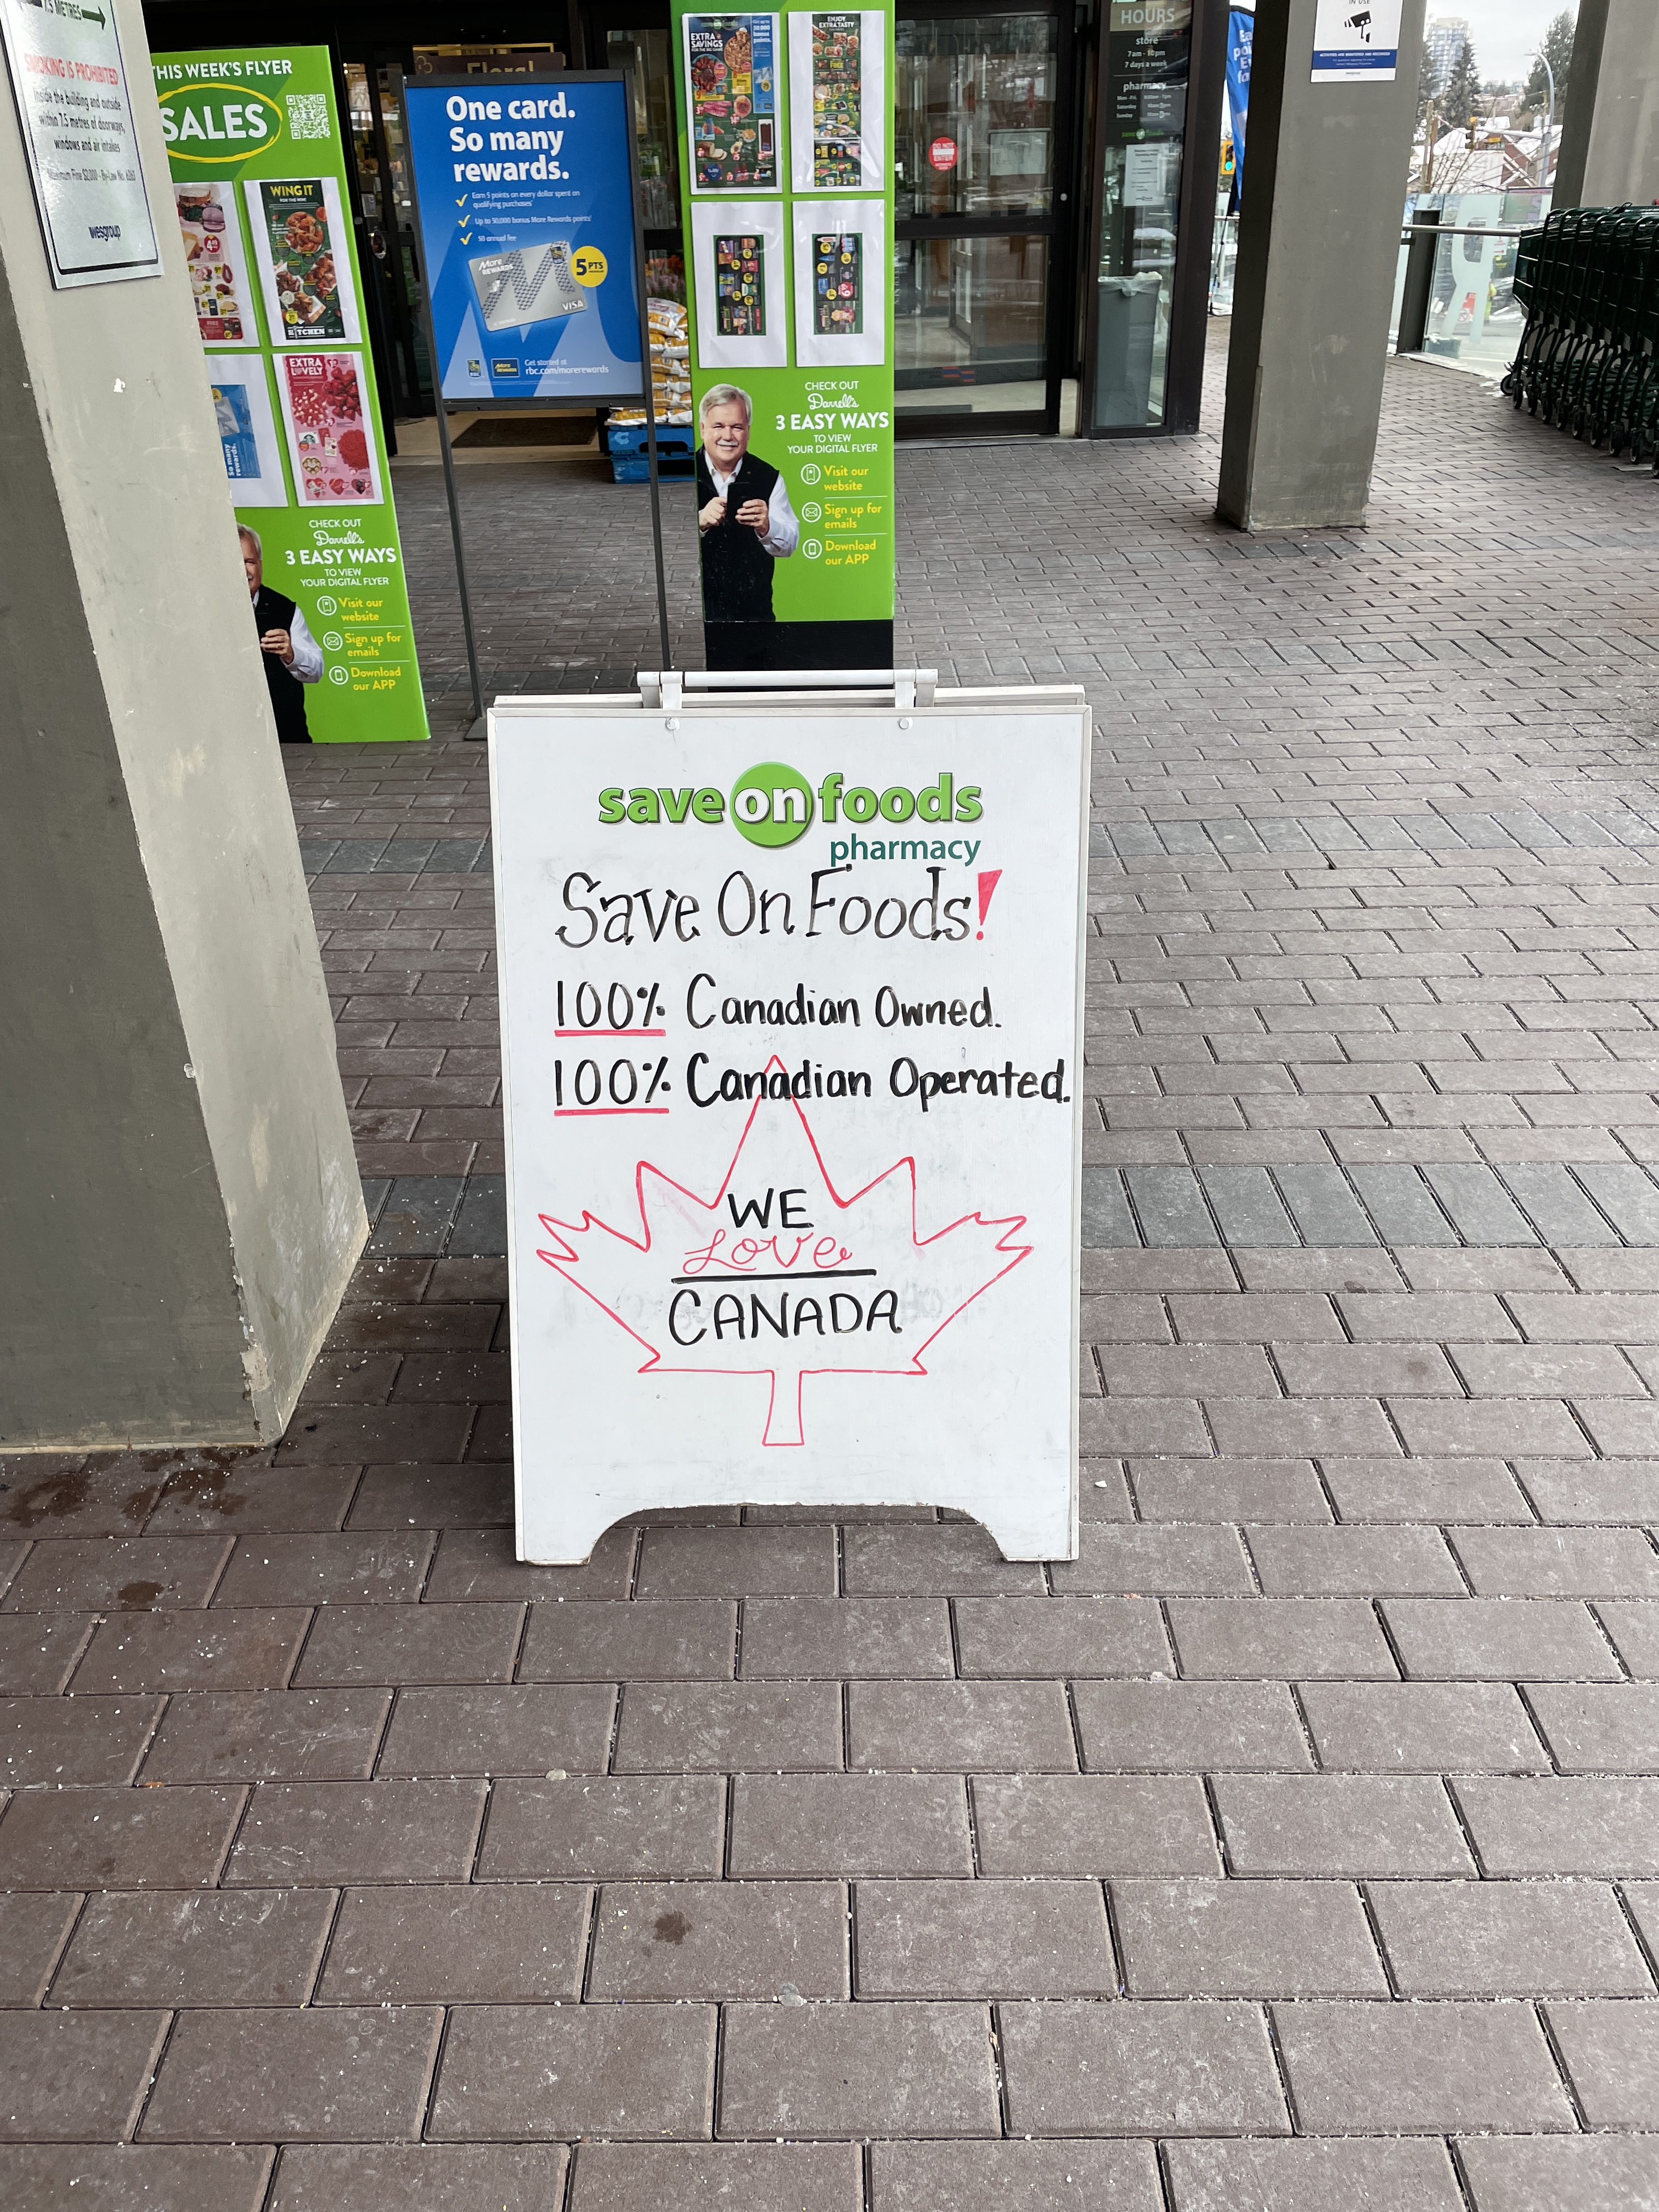 7.5 METRES
SMOKING IS PROHIBITED
Inside the building and outside
within 7.5 metres of doorways,
windows and air intakes
wesgroup
THIS WEEK'S FLYER
SALES
WING IT
KITCHEN
EXTRA
LOVELY
So many
rewards.
CHECK OUT
Darrell's
3 EASY WAYS
TO VIEW
YOUR DIGITAL FLYER
Visit our
website
Sign up for
emails
Download
our APP
Floral
One card.
So many
rewards.
Earn 5 points on every dollar spent on
qualifying purchases
Up to 50,000 bonus More Rewards points
$0 annual fee
More
REWARDS
5 PTS
VISA
RBC
More
REWARDS
Get started at
rbc.com/morerewards
EXTRA
SAVINGS
ENJOY
EXTRA TASTY
CHECK OUT
Darrell's
3 EASY WAYS
TO VIEW
YOUR DIGITAL FLYER
Visit our
website
Sign up for
emails
Download
our APP
DO NOT
ENTER
HOURS
store
7am - 10pm
7 days a week
pharmacy
IN USE
save on foods
pharmacy
Save On Foods!
100% Canadian Owned.
100% Canadian Operated.
WE
Love
CANADA